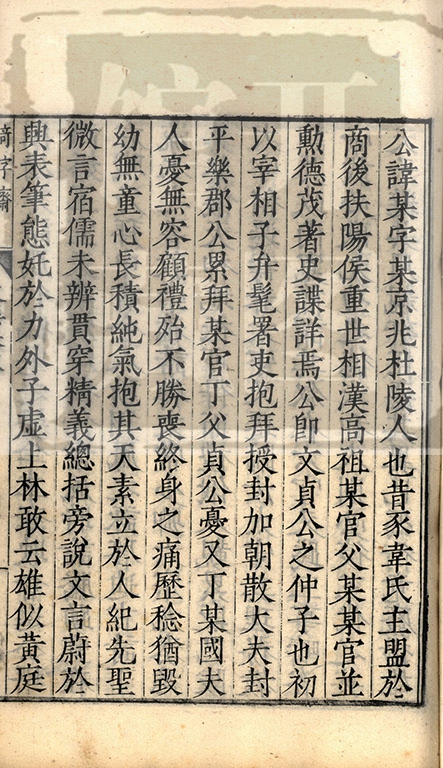 公諱某字某京兆杜陵人也昔豕韋氏主盟於
商後扶陽侯重世相漢高祖某官父某某官並
勳德茂著史諜詳焉公卽文貞公之仲子也初
以宰相子弁髦署吏抱拜授封加朝散大夫封
平樂郡公累拜某官丁父貞公憂又丁某國夫
人憂無容顧禮殆不勝喪終身之痛歷稔猶毀
幼無童心長積純氣抱其天素立於人紀先聖
微言宿儒未辨貫穿精義總括旁說文言蔚於
興表筆態姙於力外子虛上林敢云雄似黃庭